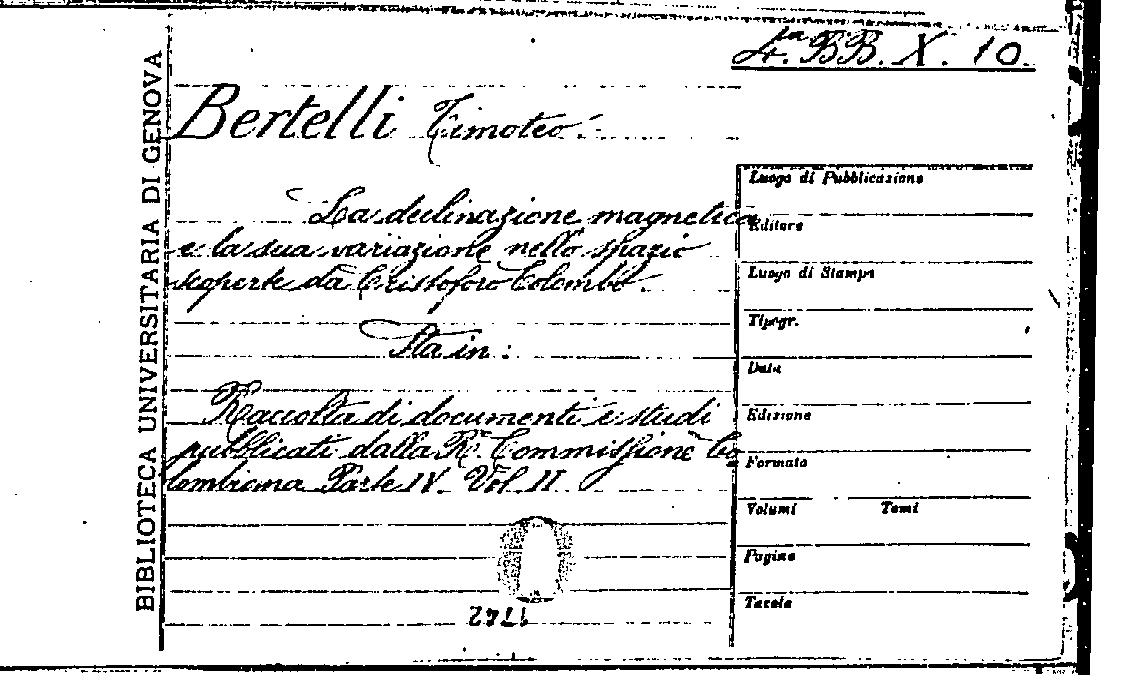 4.ta BB. X. 10.
BIBLIOTECA UNIVERSITARIA DI GENOVA
Bertelli Timoteo.
La declinazione magnetica
e la sua variazione nello spazio
scoperte da Cristoforo Colombo.
Sta in:
Raccolta di documenti e studi
pubblicati dalla R. Commissione Co
lombiana Parte IV. Vol. II
Luogo di Pubblicazione
Editore
Luogo di Stampa
Tipogr.
Data
Edizione
Formato
Volumi Tomi
Pagine
Tavole